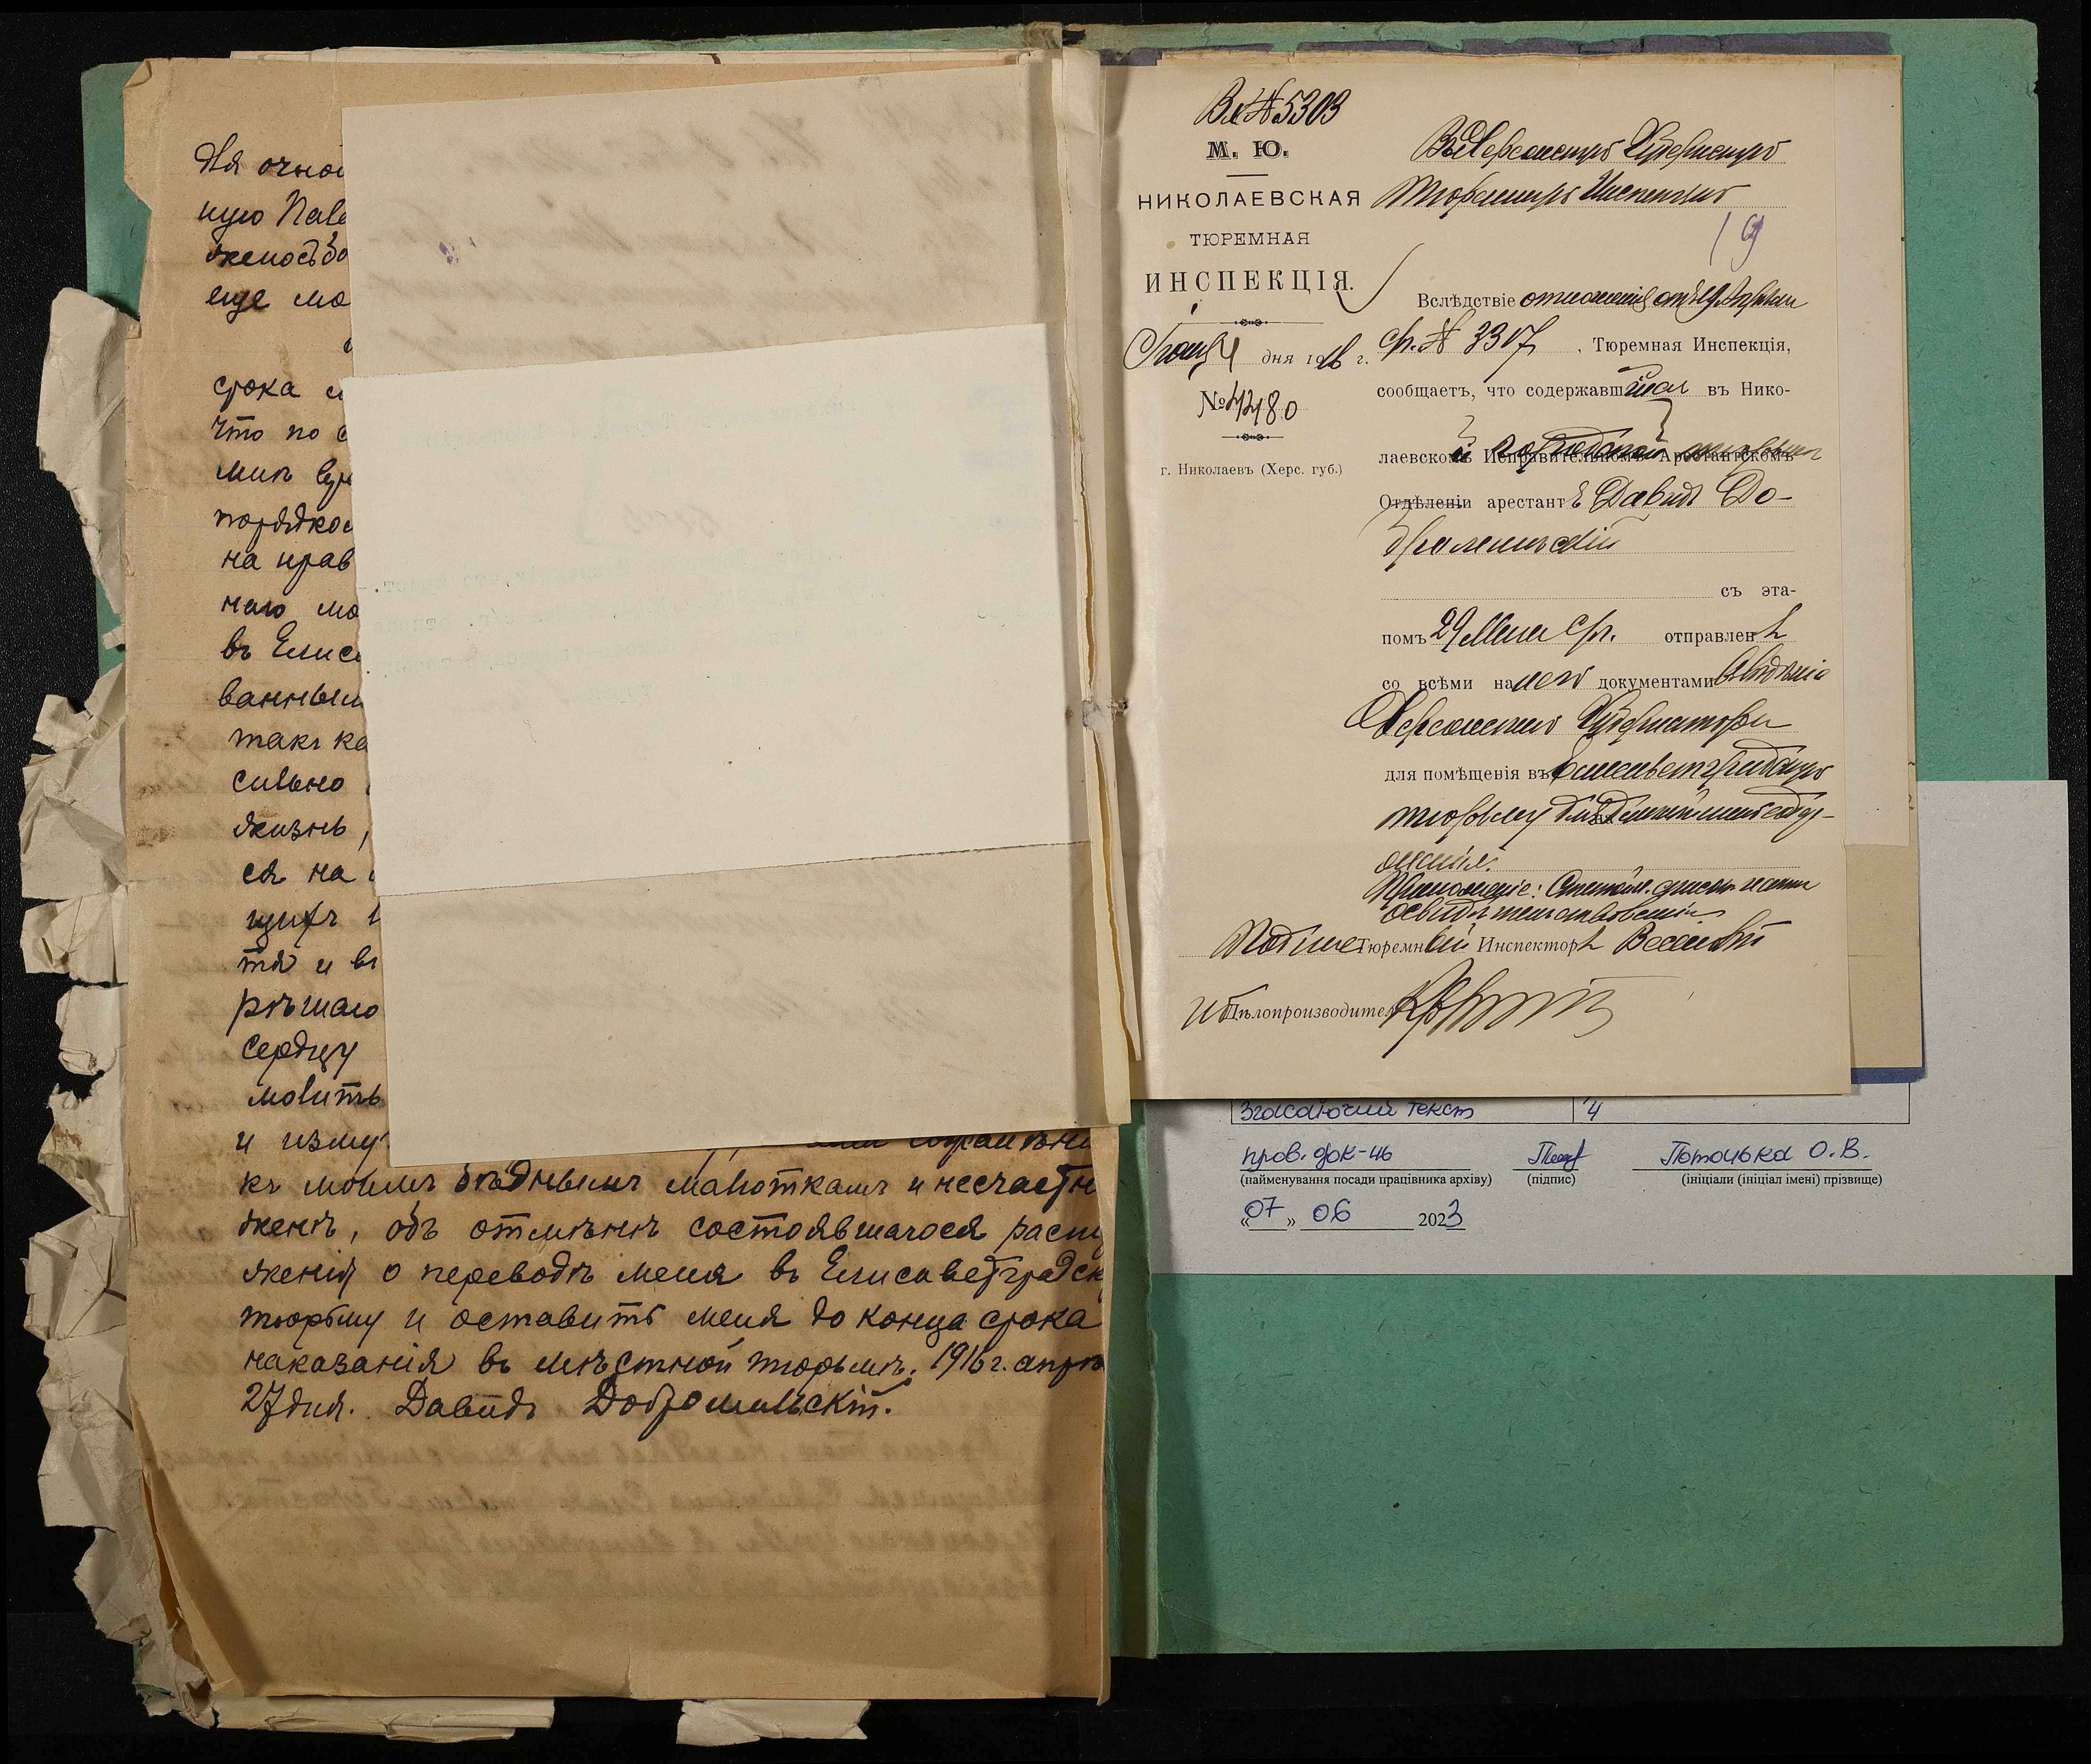 для очной
ную Пав
женость
еще мо
срока
что по
мик
порядком
на прав
наго мо
въ Елиса
ванным
такъ ка
сильно
жизнь,
ся на
щихъ
тя и въ
рѣшаю
сердцу
молить
и изму
къ моимъ бѣднымъ малюткамъ и несчастн
женѣ, объ отмѣнѣ состоявшагося расп
женія о переводѣ меня въ Елисаветградск
тюрьму и оставить меня до конца срока
наказанія въ мѣстной тюрьмѣ. 1916 г. апрѣ
27 дня. Давидъ Добромильскій.
Вх № 5303
М. Ю.
НИКОЛАЕВСКАЯ
ТЮРЕМНАЯ
ИНСПЕКЦІЯ.
Іюня 4 дня 1916 г.
№ 4480
г. Николаевъ (Херс. губ.)
Въ Херсонскую Губернскую
Тюремную Инспекцію
19
Вслѣдствіе отношенія отъ 29 Апрѣля
с/г. № 3307, Тюремная Инспекція,
сообщаетъ, что содержавшійся въ Нико-
лаевской Исправительномъ Арестантскомъ
Отдѣленіи арестантъ Давидъ До-
бромильскій
съ эта-
помъ 29 Мая с/г. отправленъ
со всѣми на него документами въ вѣдѣніе
Херсонскаго Губернатора
для помѣщенія въ Елисаветградскую
тюрьму для дальнѣйшаго содер-
жанія.
Приложеніе: Статейн. списокъ и актъ
освидѣтельствованія.
Подписа Тюремный Инспекторъ
Дѣлопроизводитель
Згасаючий текст 4
пров. док-ів Потоцька О.В.
(найменування посади працівника архіву) (підпис) (ініціали (ініціал імені) прізвище)
«07» 06 2023